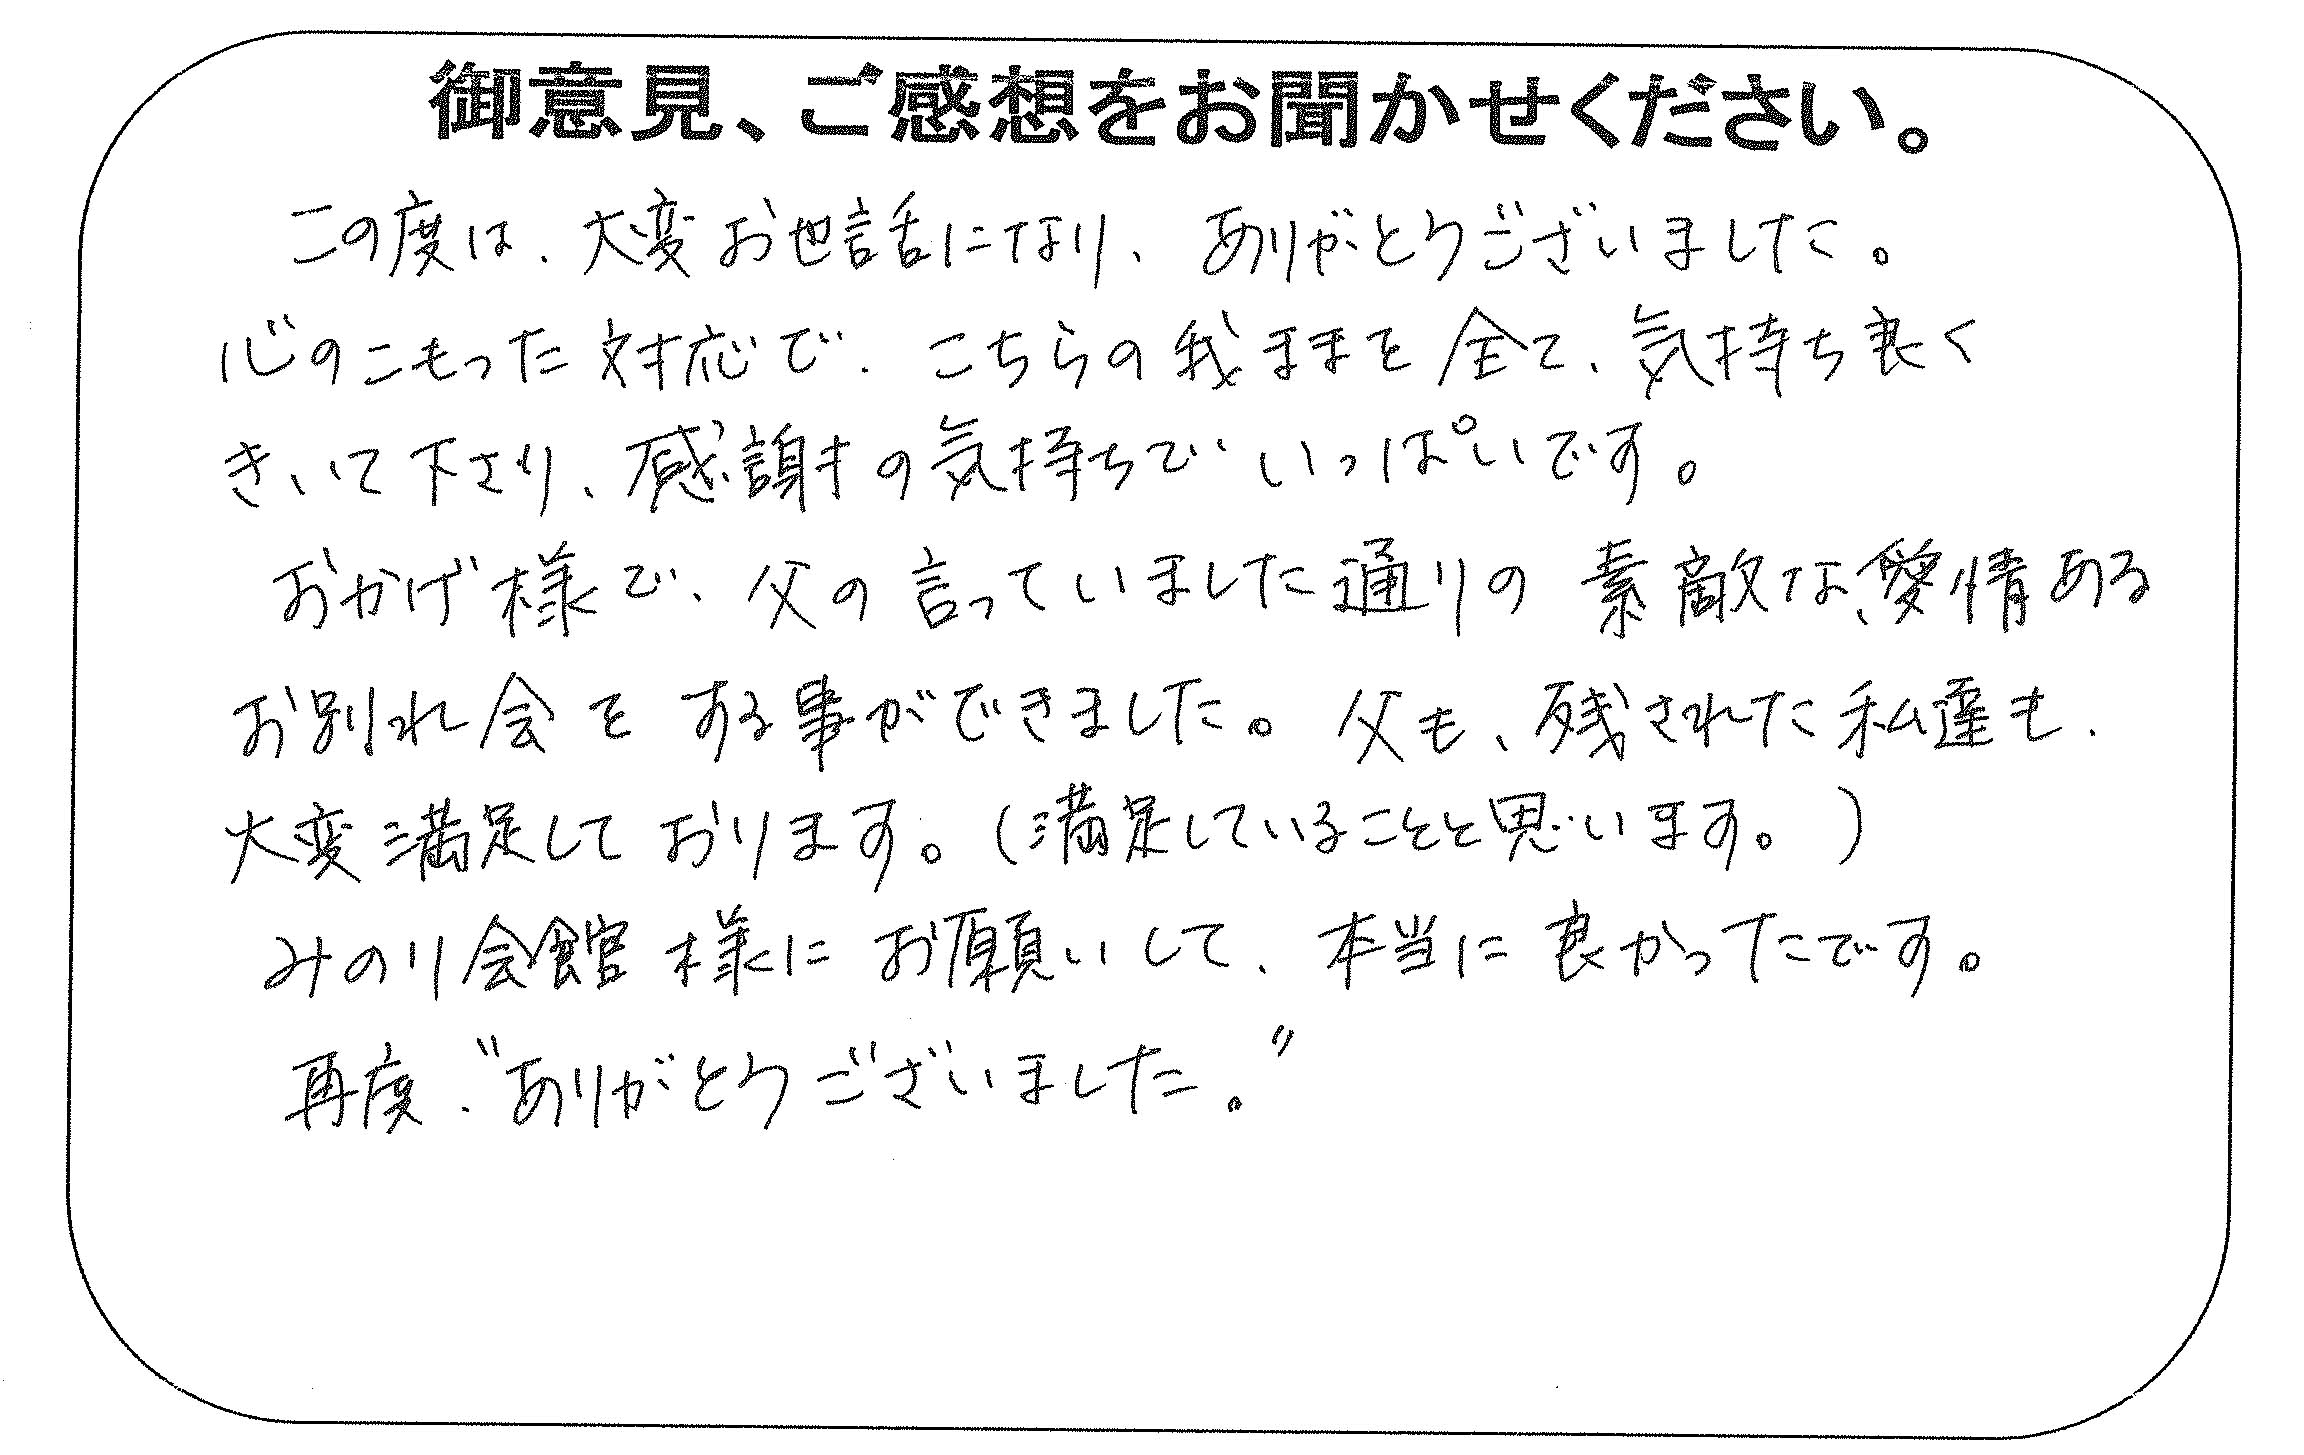 御意見、ご感想をお聞かせください。
この度は、大変お世話になり、ありがとうございました。
心のこもった対応で、こちらの我ままを全て、気持ち良く
きいて下さり、感謝の気持ちでいっぱいです。
おかげ様で、父の言っていました通りの素敵な、愛情ある
お別れ会をする事ができました。父も、残された私達も、
大変満足しております。(満足していることと思います。)
みのり会館様にお願いして、本当に良かったです。
再度、“ありがとうございました。”